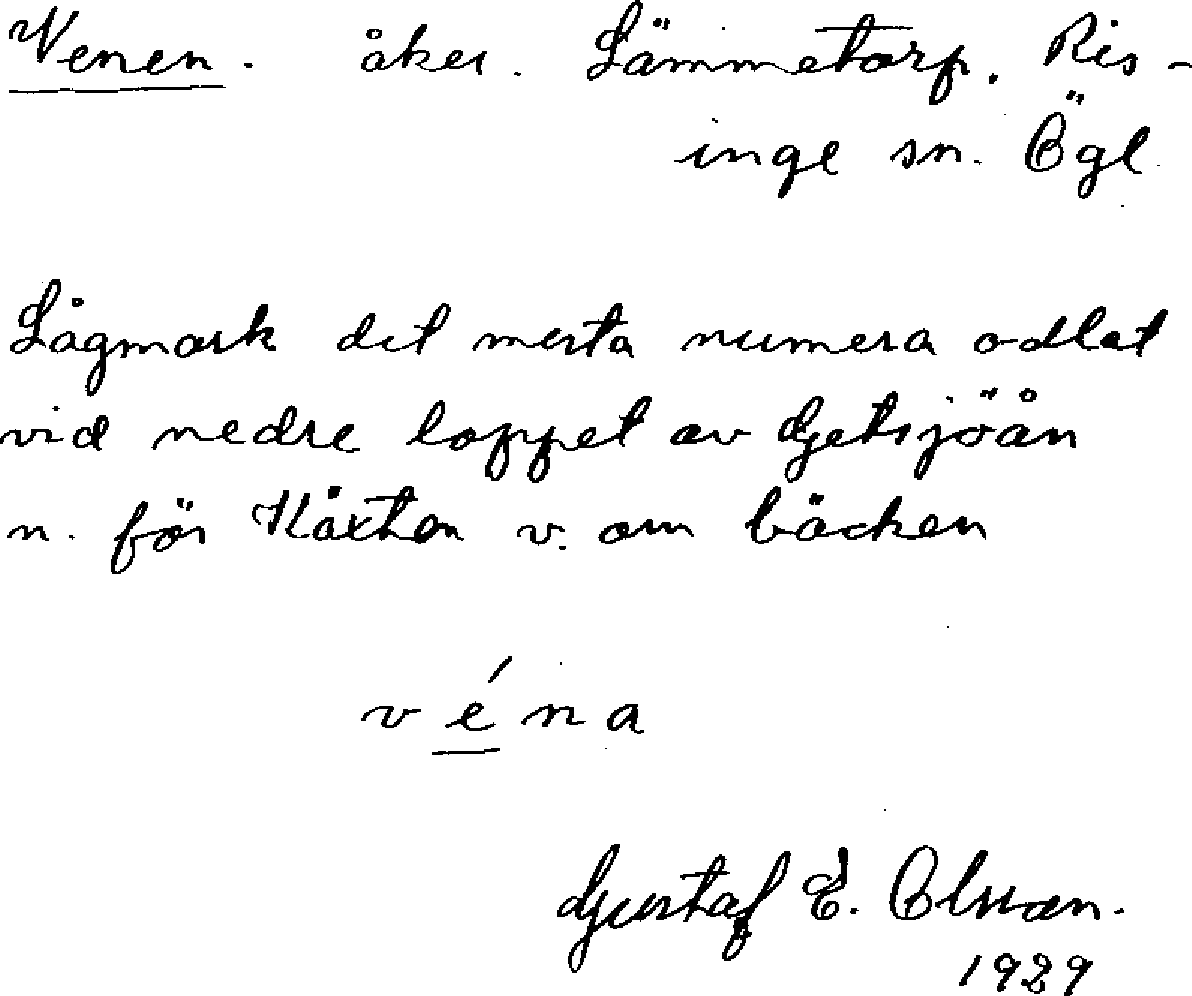 Venen. åker. Lämmetorp. Ris-
inge sn. Ögl.
Lågmark det mesta numera odlat
vid nedre loppet av Getsjöån
n. för Håxton v. om bäcken
véna
Gustaf E. Olsson.
1929